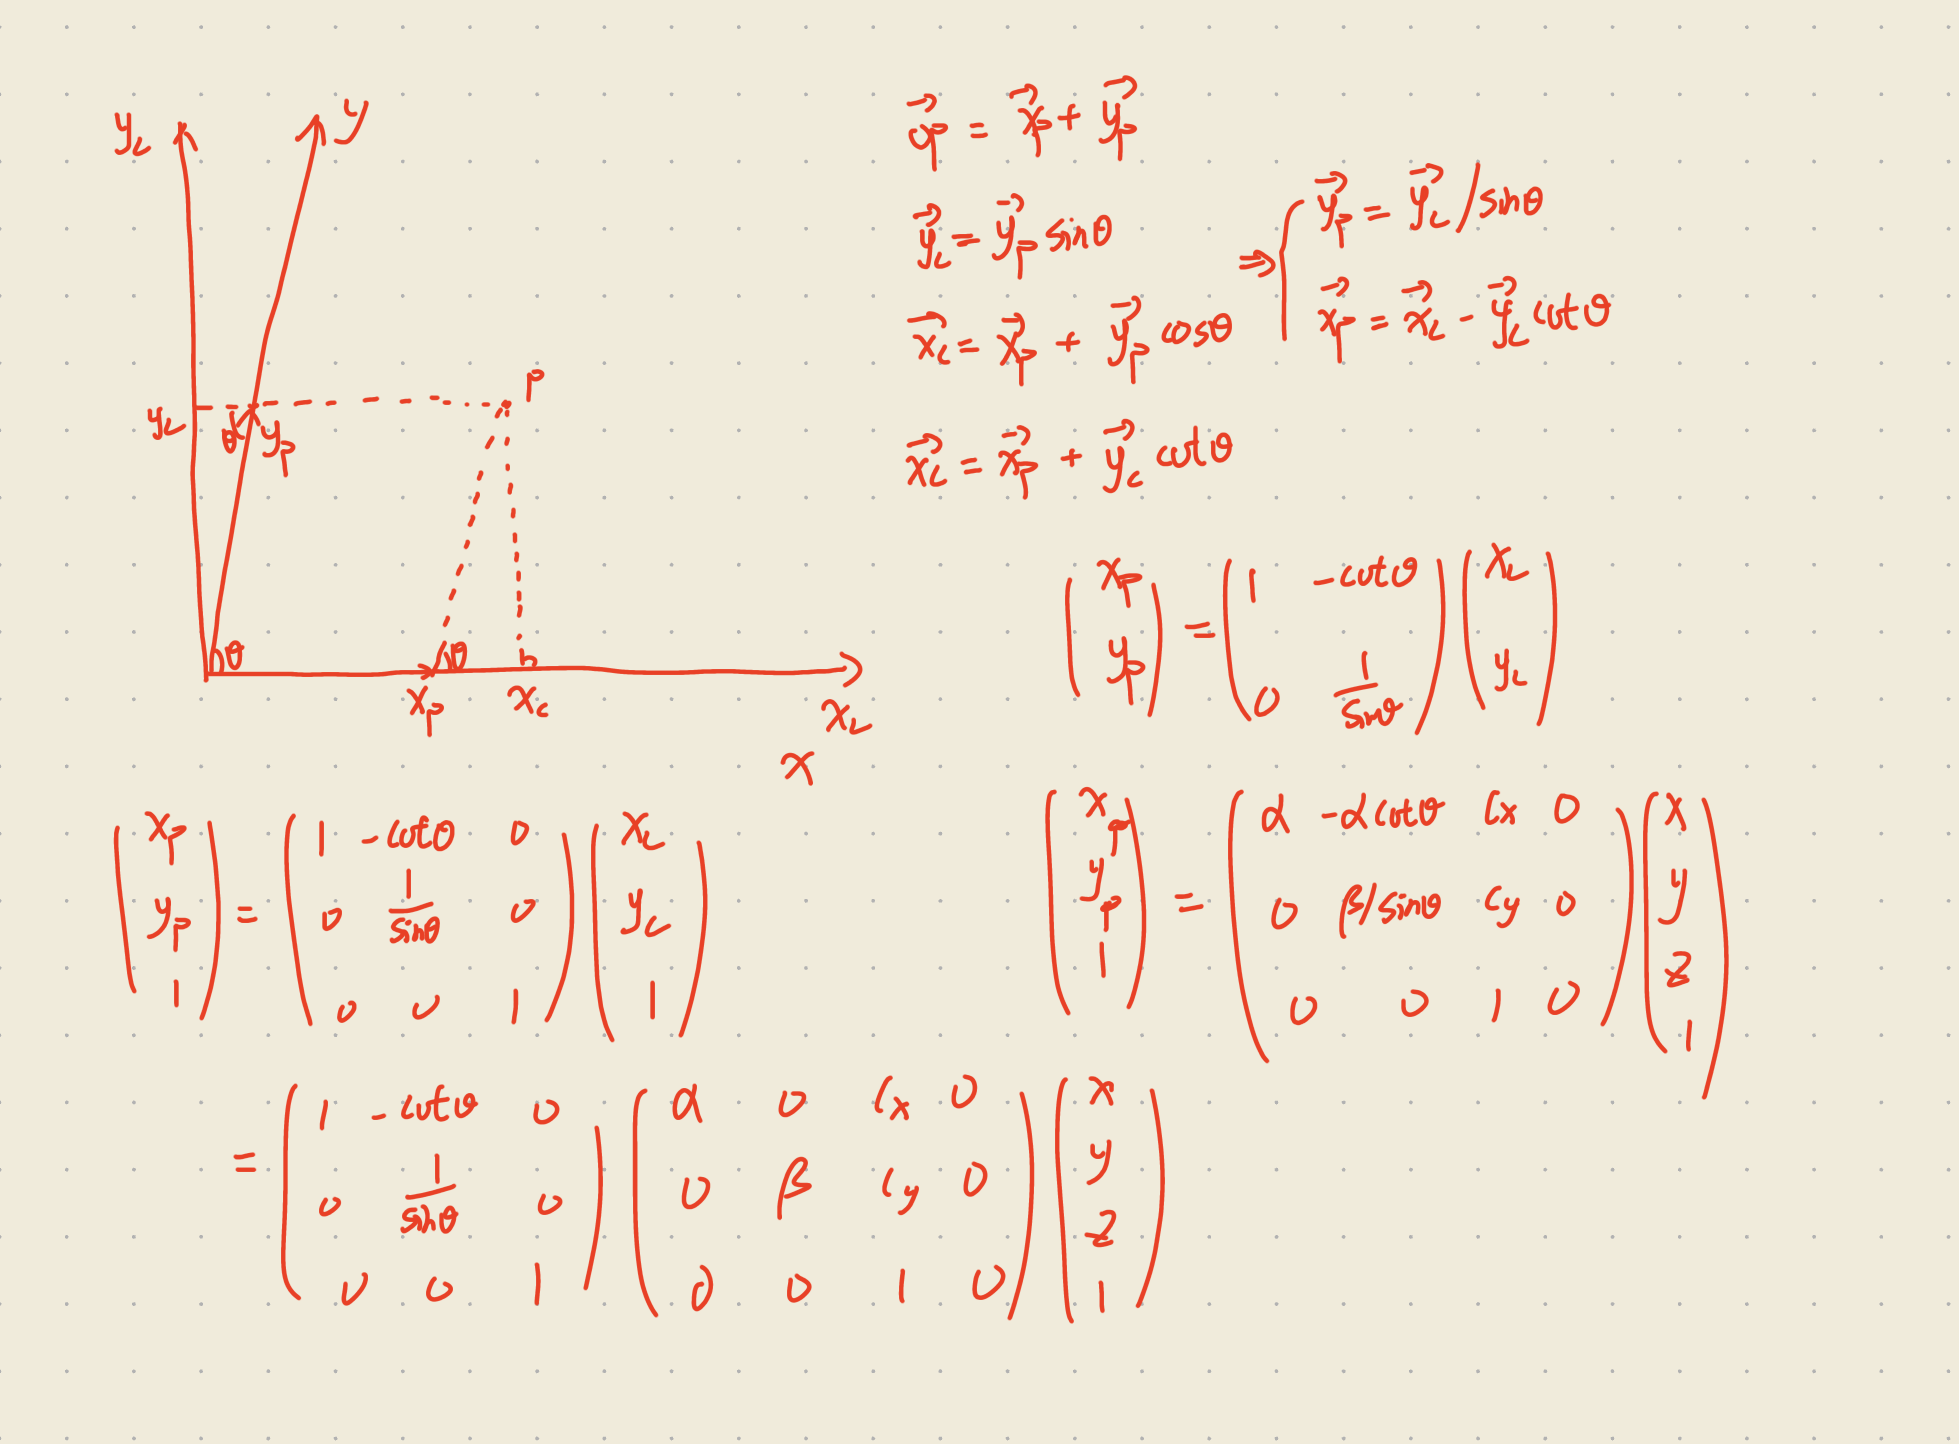 y_c y
y_c θ y_p P
θ θ
x_p x_c x_c
x
\vec{op} = \vec{x_p} + \vec{y_p}
\vec{y_c} = \vec{y_p} sinθ
\vec{x_c} = \vec{x_p} + \vec{y_p} cosθ
\vec{x_c} = \vec{x_p} + \vec{y_c} cotθ
⇒ { \vec{y_p} = \vec{y_c} / sinθ
\vec{x_p} = \vec{x_c} - \vec{y_c} cotθ
(x_p; y_p) = (1 -cotθ; 0 1/sinθ) (x_c; y_c)
(x_p; y_p; 1) = (1 -cotθ 0; 0 1/sinθ 0; 0 0 1) (x_c; y_c; 1)
= (1 -cotθ 0; 0 1/sinθ 0; 0 0 1) (α 0 cx 0; 0 β cy 0; 0 0 1 0) (x; y; z; 1)
(x_p; y_p; 1) = (α -αcotθ cx 0; 0 β/sinθ cy 0; 0 0 1 0) (x; y; z; 1)